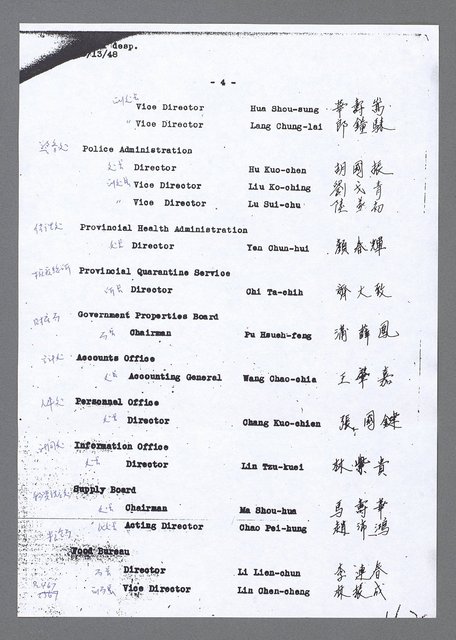 desp.
/13/48
- 4 -
Vice Director Hua Shou-sung 華壽嵩
" Vice Director Lang Chung-lai 郎鐘騋
Police Administration
Director Hu Kuo-chen 胡國振
Vice Director Liu Ko-ching 劉戈青
" Vice Director Lu Sui-chu 初
Provincial Health Administration
Director Yen Chun-hui 顏春輝
Provincial Quarantine Service
Director Chi Ta-chih 齊大
Government Properties Board
Chairman Pu Hsueh-feng 浦薛鳳
Accounts Office
Accounting General Wang Chao-chia 王肇嘉
Personnel Office
Director Chang Kuo-chien 張國鍵
Information Office
Director Lin Tzu-kuei 林紫貴
Supply Board
Chairman Ma Shou-hua 馬壽華
Acting Director Chao Pei-hung 趙沛鴻
Wood Bureau
Director Li Lien-chun 李連春
Vice Director Lin Chen-cheng 林成